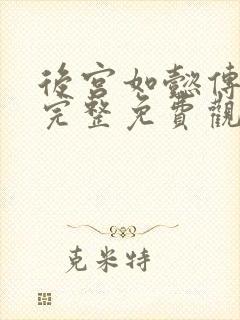 後宮如懿傳
完整免費觀
克米特